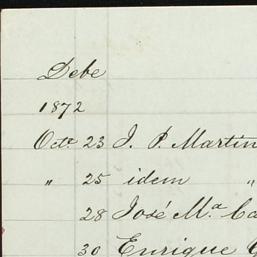 Debe
1872
Octe 23 J. P. Martin
" 25 idem "
28 José M.a
30 Enrique